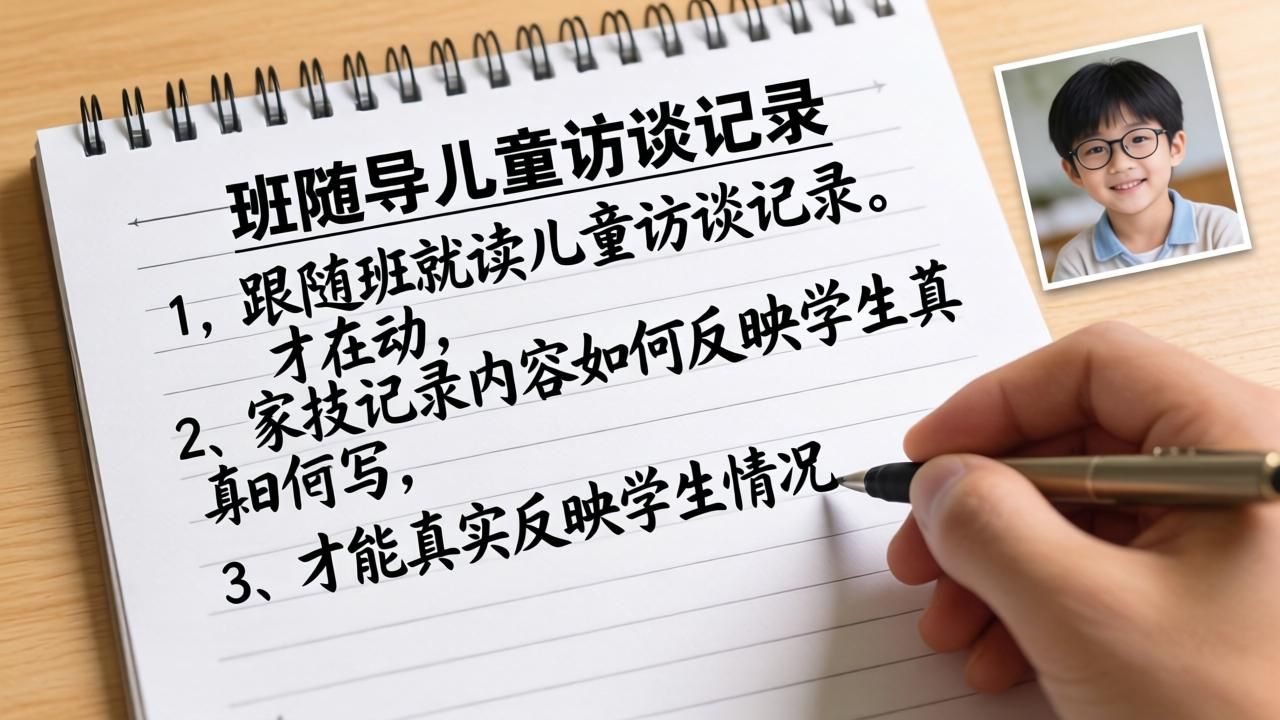 班随导儿童访谈记录
1，跟随班就读儿童访谈记录。
才在动，
2、家技记录内容如何反映学生真
何写，
3、才能真实反映学生情况